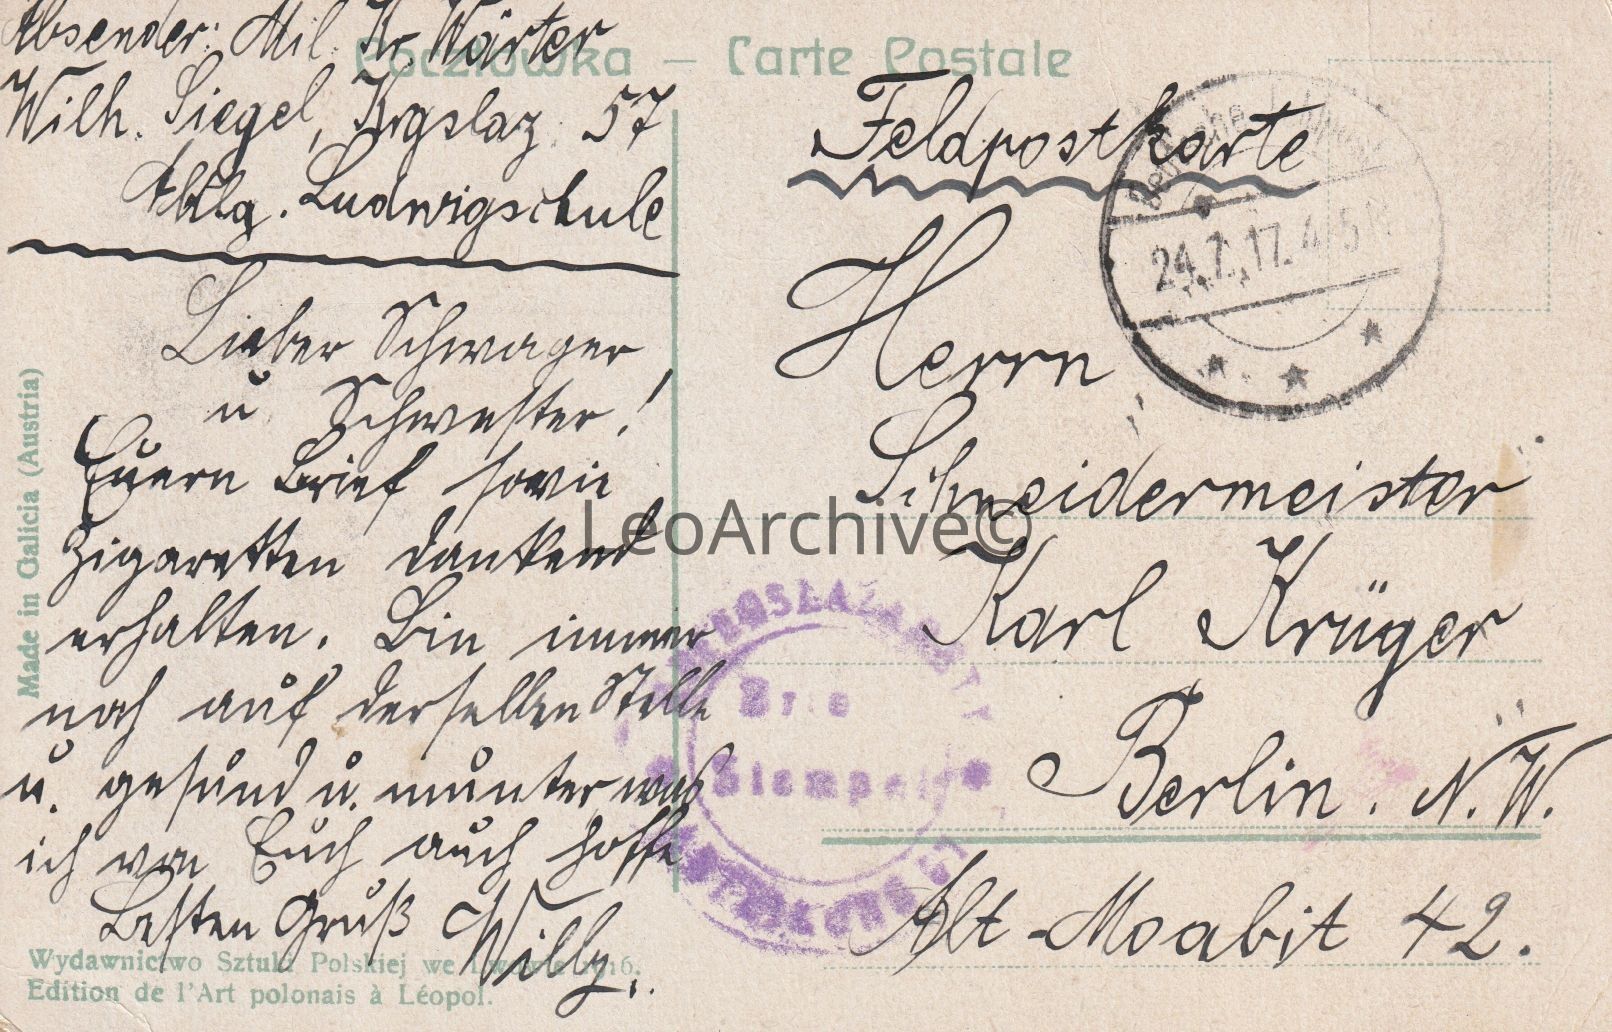 Absender: Mil. Kr. Wärter
Wilh. Siegel, Krgslaz. 57
Abtlg. Ludwigschule
Lieber Schwager
u Schwester!
Euern Brief sowie
Zigaretten dankend
erhalten. Bin immer
noch auf derselben Stelle
u. gesund u. munter was
ich von Euch auch hoffe
Besten Gruß Willy.
Pocztówka — Carte Postale
Feldpostkarte
24.7.17. 4-5 N
Herrn
Schneidermeister
Karl Krüger
Berlin. N.W.
Alt-Moabit 42.
Stempel
LeoArchive©
Made in Galicia (Austria)
Wydawnictwo Sztuki Polskiej we Lwowie 1916.
Edition de l'Art polonais à Léopol.